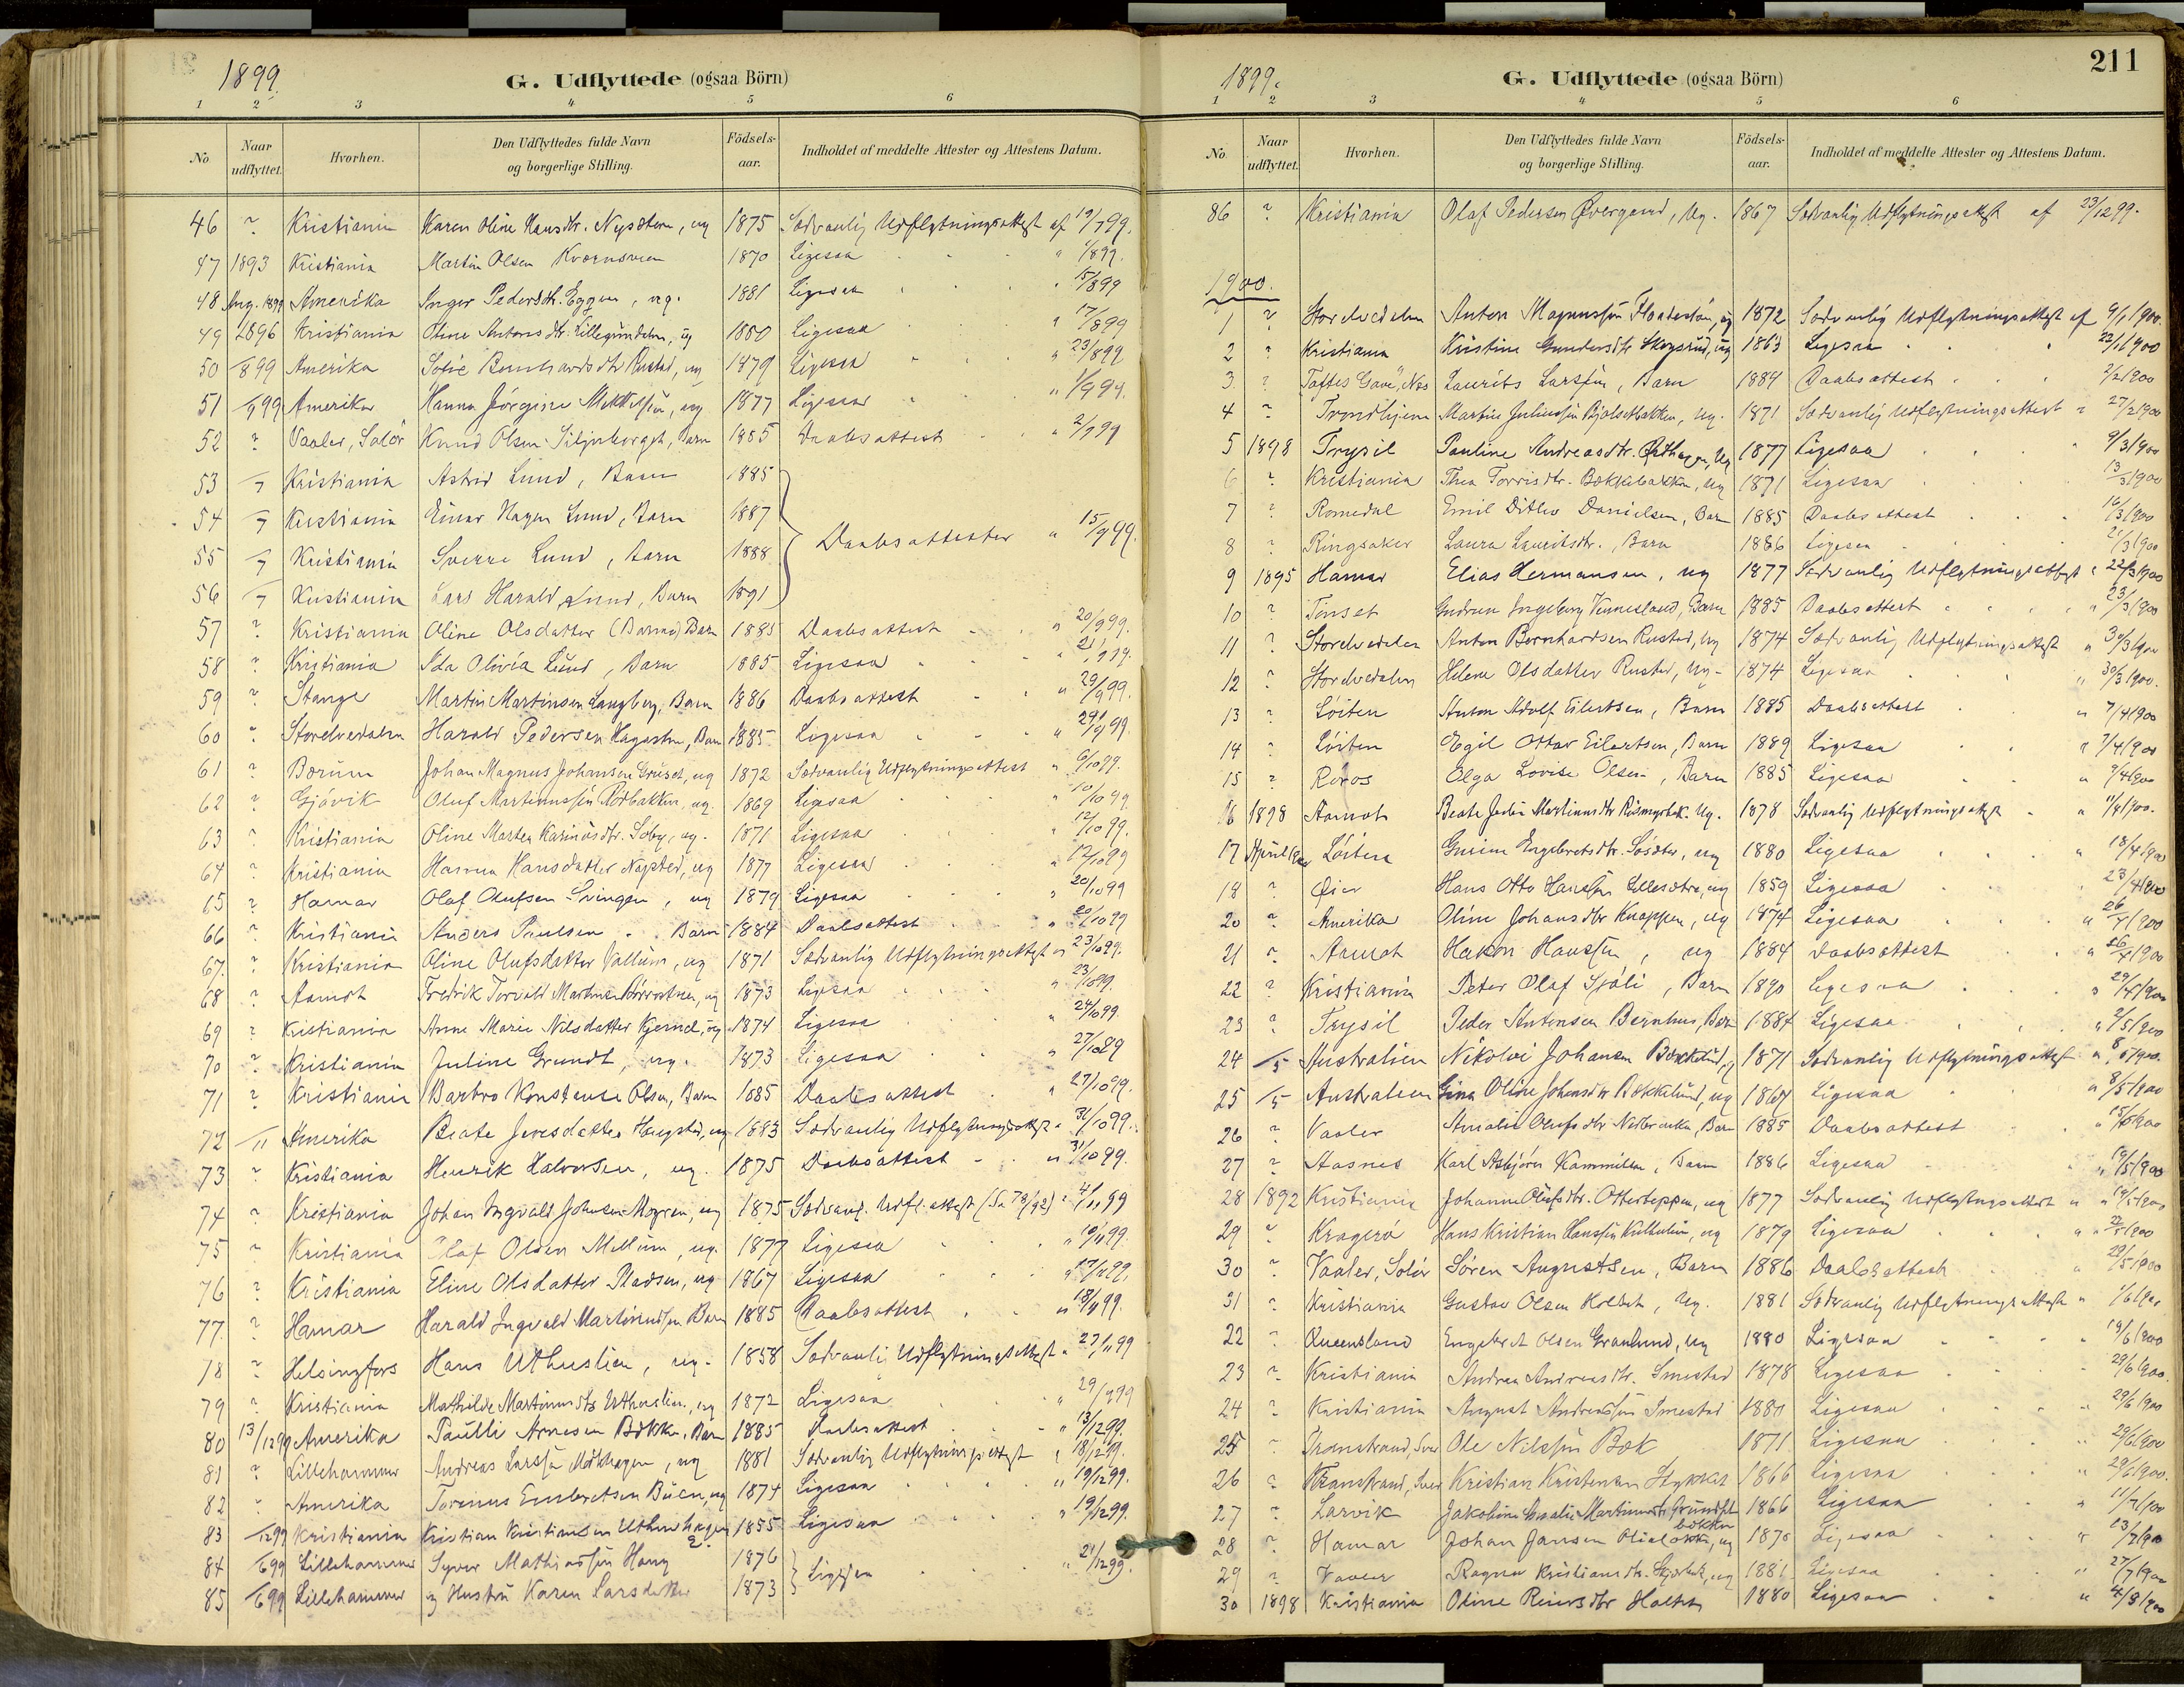 1899.
G. Udflyttede (ogsaa Börn)
1 2 3 4 5 6
No Naar udflyttet. Hvorhen. Den Udflyttedes fulde Navn og borgerlige Stilling. Födsels-aar. Indholdet af meddelte Attester og Attestens Datum.
46 ? Kristiania Karen Oline Hansdtr. ug 1875 Sædvanlig Udflytningsattest af 19/7 99.
47 1893 Kristiania Martin Olsen 1870 Ligesaa " 1/8 99.
48 Aug. 1899 Amerika Inger Pedersdtr. Eggen, ug. 1881 Ligesaa " 15/8 99
49 1896 Kristiania Oline Antonsdtr. ug 1880 Ligesaa " 17/8 99
50 /8 99 Amerika Sofie Bernhardsdtr Rustad, ug 1879 Ligesaa " 23/8 99
51 /9 99 Amerika Hanna Jörgine ug 1877 Ligesaa " 1/9 99.
52 ? Vaaler, Solör Knud Olsen Barn 1885 Daabsattest " 2/9 99
53 /7 Kristiania Astrid Lund, Barn 1885
54 /7 Kristiania Einar Hagen Lund, Barn 1887
55 /7 Kristiania Sverre Lund, Barn 1888 Daabsattester " 15/9 99.
56 /7 Kristiania Lars Harald Lund, Barn 1891
57 ? Kristiania Oline Olsdatter Barn 1885 Daabsattest " 20/9 99.
58 ? Kristiania Ida Olivia Lund, Barn 1885 Ligesaa " 21/9 99.
59 ? Stange Martin Martinsen Langberg, Barn 1886 Daabsattest " 29/9 99.
60 ? Storelvedalen Harald Pedersen Barn 1885 Ligesaa " 29/9 99.
61 ? Bærum Johan Magnus Johansen Grüset, ug 1872 Sædvanlig Udflytningsattest " 6/10 99.
62 ? Gjövik Oluf Martinussen ug. 1869 Ligesaa " 10/10 99
63 ? Kristiania Oline Martea ug. 1871 Ligesaa " 12/10 99.
64 ? Kristiania Hanna Hansdatter ug 1877 Ligesaa " 17/10 99
65 ? Hamar Olaf Olufsen Svingen, ug 1879 Ligesaa " 20/10 99
66 ? Kristiania Anders Paulsen Barn 1884 Daabsattest " 20/10 99
67. ? Kristiania Oline Olufsdatter ug 1871 Sædvanlig Udflytningsattest " 23/10 99.
68 ? Aamot Fredrik Torvald ug 1873 Ligesaa " 23/10 99.
69 ? Kristiania Anne Marie Nilsdatter Kjernli, ug 1874 Ligesaa " 24/10 99.
70 ? Kristiania Juline Grundt, ug. 1873 Ligesaa " 27/10 89
71 ? Kristiania Barbro Konstanse Olsen, Barn 1885 Daabsattest " 27/10 99.
72 /11 Amerika Beate Jensdatter Haugstad, ug 1883 Sædvanlig Udflytningsattest " 31/10 99.
73 ? Kristiania Henrik Halvorsen, ug. 1875 Daabsattest " 31/10 99.
74 ? Kristiania Johan Ingvald Johnsen Mogren, ug 1875 Sædvanl. Udfl.attest " 4/11 99
75 ? Kristiania Olaf Olsen Mellum, ug. 1877 Ligesaa " 10/11 99.
76 ? Kristiania Eline Olsdatter Pladsen, ug 1867 Ligesaa " 17/11 99.
77. ? Hamar Harald Ingvald Martinussen Barn 1885 Daabsattest " 18/11 99.
78 ? Helsingfors Hans Uthuslien, ug. 1858 Sædvanlig Udflytningsattest " 27/11 99
79 ? Kristiania Mathilde Martinusdtr Uthuslien, ug 1872 Ligesaa " 29/11 99
80 13/12 99 Amerika Paulli Arnesen Bække, Barn 1885 Daabsattest " 13/12 99.
81 ? Lillehammer Andreas Larssön ug 1881 Sædvanlig Udflytningsattest " 18/12 99.
82 " Amerika Torinus Embretsen ug 1874 Ligesaa " 19/12 99.
83 /12 99 Kristiania Kristian Kristiansen Uthushagen 1855 Ligesaa " 19/12 99.
84 /6 99 Lillehammer Syver Mathiassön Haug 1876
85 /6 99 Lillehammer og Hustru Karen Larsdatter 1873 Ligesaa " 21/12 99.
211
1899.
G. Udflyttede (ogsaa Börn)
1 2 3 4 5 6
No. Naar udflyttet. Hvorhen. Den Udflyttedes fulde Navn og borgerlige Stilling. Födsels-aar. Indholdet af meddelte Attester og Attestens Datum.
86 ? Kristiania Olaf Pedersen Øvergaard, Ug. 1867 Sædvanlig Udflytningsattest af 23/12 99.
1900.
1 ? Storelvedalen Anton Magnussön ug 1872 Sædvanlig Udflytningsattest af 9/1 1900.
2 ? Kristiania Kristine Gundersdtr Skogsrud, ug 1863 Ligesaa " 22/1 1900
3. ? "Toftes Gave", Nes Laurits Larssön, Barn 1884 Daabsattest 2/2 1900
4 ? Trondhjem Martin Juliussön ug. 1871 Sædvanlig Udflytningsattest " 27/2 1900
5 1898 Trysil Pauline Andreasdtr. Ug 1877 Ligesaa " 9/3 1900
6 ? Kristiania Thea Torrisdtr. Bækkebakken, Ug 1871 Ligesaa 13/3 1900
7 ? Romedal Emil Ditlev Danielsen, Barn 1885 Daabsattest 16/3 1900
8 ? Ringsaker Laura Lauritsdtr., Barn 1886 Ligesaa 21/3 1900
9 1895 Hamar Elias Hermansen, ug 1877 Sædvanlig Udflytningsattest " 22/3 1900
10 ? Tønset Gudrun Ingeborg Vennesland, Barn 1885 Daabsattest " 23/3 1900
11 ? Storelvedalen Anton Bernhardsen Rustad, ug 1874 Sædvanlig Udflytningsattest " 30/3 1900
12 ? Storelvedalen Helene Olsdatter Rustad, ug. 1874 Ligesaa " 30/3 1900.
13 ? Löiten Anton Adolf Eilertsen, Barn 1885 Daabsattest " 7/4 1900
14 ? Löiten Egil Ottar Eilertsen, Barn 1889 Ligesaa " 7/4 1900
15 ? Röros Olga Lovise Olsen, Barn 1885 Ligesaa " 9/4 1900
16 1898 Aamot Beate Martinusdtr Ug. 1878 Sædvanlig Udflytningsattest " 11/4 1900.
17 April 1900 Löiten Gurine Engebretsdtr. ug 1880 Ligesaa " 18/4 1900
18 ? Øier Hans Otto Hanssön ug 1859 Ligesaa 23/4 1900
20 ? Amerika Oline Johansdtr Knappen, ug 1874 Ligesaa " 26/4 1900
21 ? Aamot Hakon Hanssen, ug 1884 Daabsattest " 26/4 1900
22 ? Kristiania Peter Olaf Sjöli, Barn 1890 Ligesaa " 29/4 1900
23 ? Trysil Peder Antonsen Barn 1884 Ligesaa " 2/5 1900
24 /5 Australien Nikolai Johansen Bækkelund, 1871 Sædvanlig Udflytningsattest " 8/5 1900.
25 /5 Australien Gina Oline Johansdtr Bækkelund, ug 1867 Ligesaa " 8/5 1900
26 ? Vaaler Amalie Olufsdtr Barn 1885 Daabsattest " 15/5 1900
27 ? Aasnes Karl Asbjörn Kammilsen, Barn 1886 Ligesaa " 19/5 1900
28 1892 Kristiania Johanne Olufsdtr. Otterteppen, ug 1877 Sædvanlig Udflytngsattest " 19/5 1900
29 ? Kragerö Hans Kristian Hanssön ug 1879 Ligesaa " 22/5 1900
30 ? Vaaler, Solör Sören Augustsen, Barn 1886 Daabsattest " 29/5 1900
31 ? Kristiania Gustav Olsen Ug. 1881 Sædvanlig Udflytningsattest " 1/6 1900
22 ? Queensland Engebret Olsen Granlund, ug 1880 Ligesaa " 19/6 1900
23 ? Kristiania Andrea Andreasdtr. Smestad 1878 Ligesaa " 29/6 1900.
24 ? Kristiania August Andreassön Smestad 1881 Ligesaa " 29/6 1900
25 ? Transtrand, Sver Ole Nilssön Bæk 1871 Ligesaa " 29/6 1900
26 ? Transtrand, Sver Kristian Kristensen 1866 Ligesaa " 29/6 1900.
27 ? Larvik Jakobine Martinusdtr Grundset bækken 1866 Ligesaa " 11/7 1900
28 ? Hamar Johan Jansen ug 1870 Ligesaa " 23/7 1900
29 ? Vaaler Ragna Kristiansdtr. ug 1881 Ligesaa " 27/7 1900
30 1898 Kristiania Oline Reiersdtr Holten 1880 Ligesaa " 4/8 1900